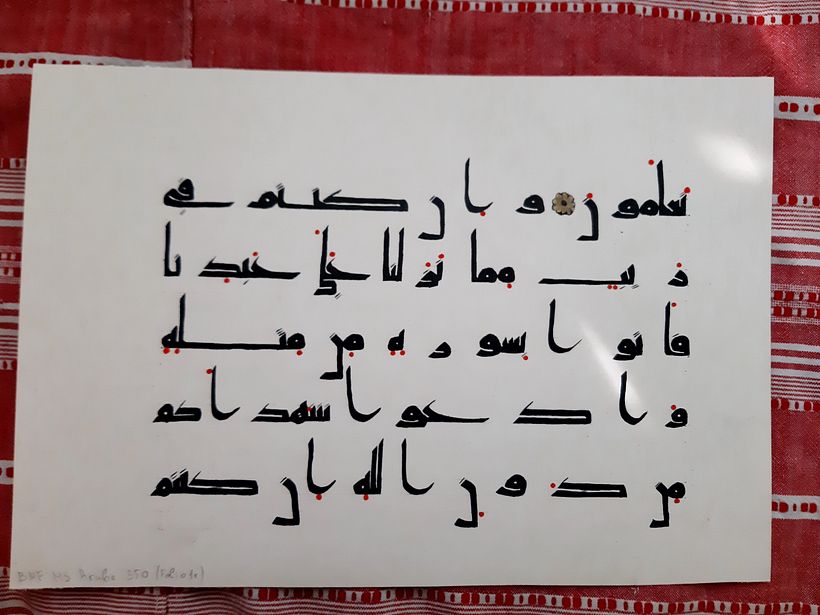 تعلمون وان كنتم في
ريب مما نزلنا على عبدنا
فاتوا بسورة من مثله
وادعوا شهداكم
من دون الله ان كنتم
BNF Ms Arabe 350 (Fol. 01r)